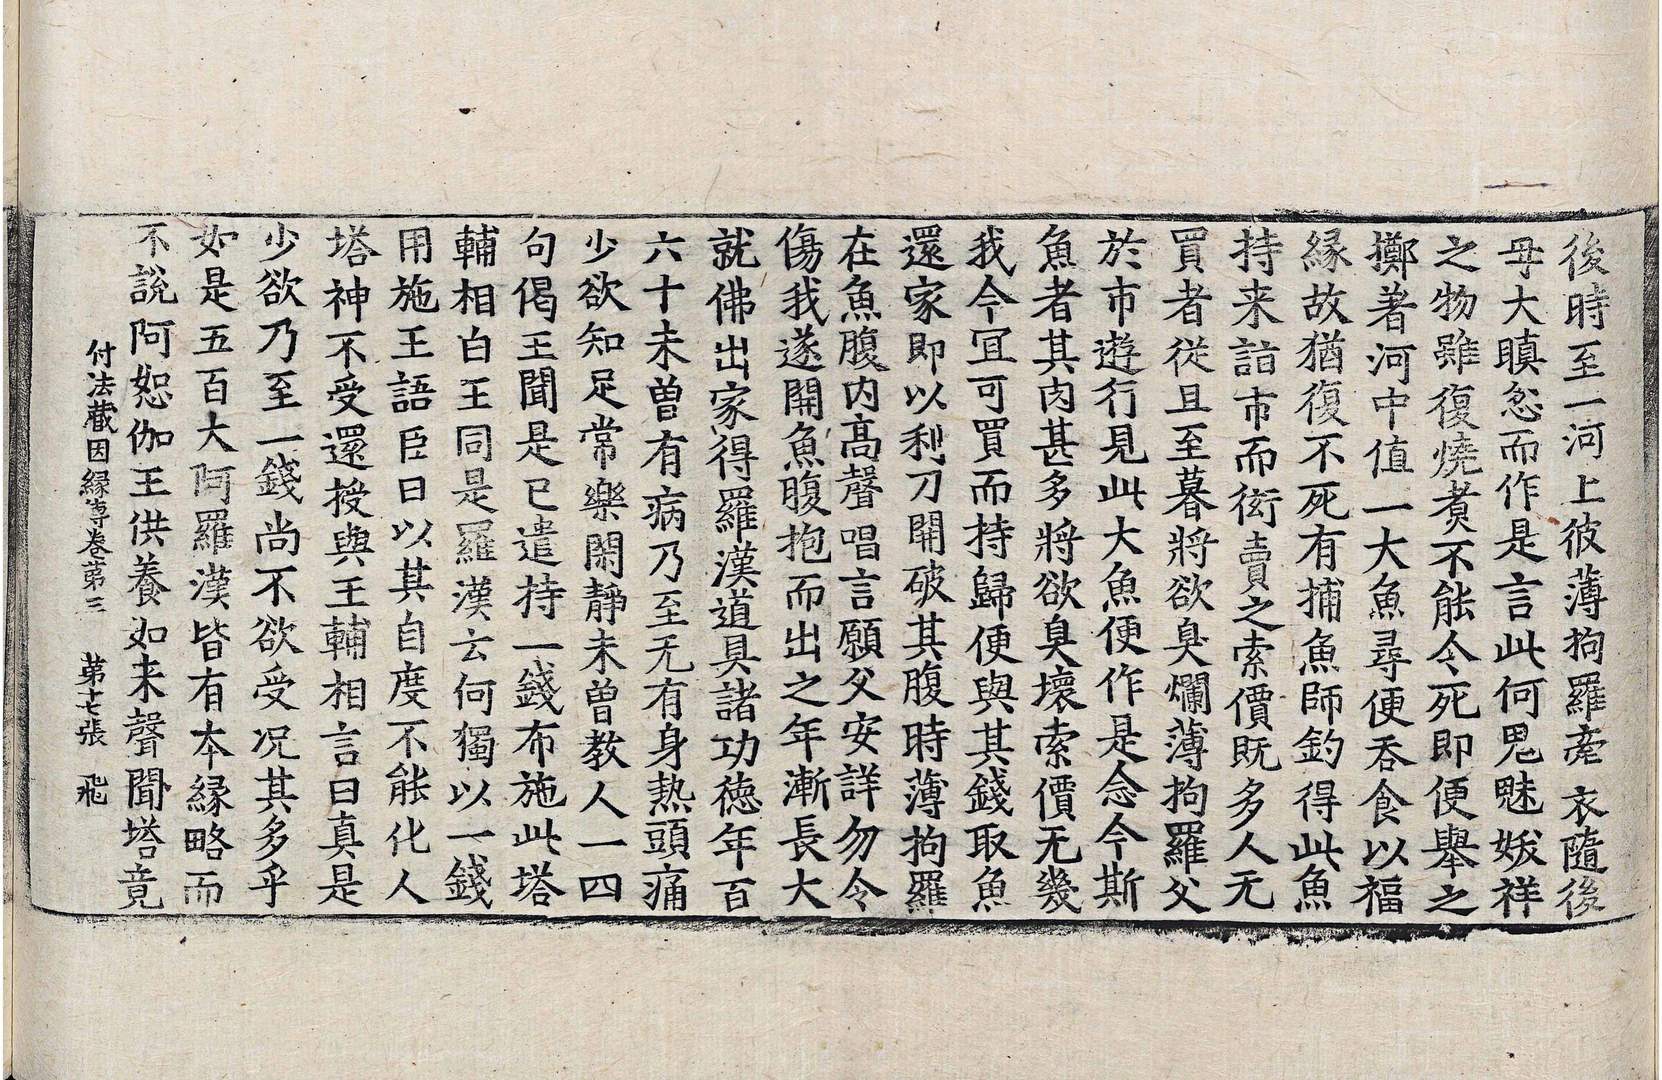 後時至一河上彼薄拘羅牽衣隨後
母大瞋忿而作是言此何鬼魅妭祥
之物雖復燒煑不能令死即便舉之
擲著河中值一大魚尋便吞食以福
緣故猶復不死有捕魚師釣得此魚
持来詣市而衒賣之索價旣多人无
買者從旦至暮將欲臭爛薄拘羅父
於市遊行見此大魚便作是念今斯
魚者其肉甚多將欲臭壞索價无幾
我今冝可買而持歸便與其錢取魚
還家即以利刀開破其腹時薄拘羅
在魚腹内髙聲唱言願父安詳勿令
傷我遂開魚腹抱而出之年漸長大
就佛出家得羅漢道具諸功德年百
六十未曾有病乃至无有身熱頭痛
少欲知足常樂閑靜未曾教人一四
句偈王聞是已遣持一錢布施此塔
輔相白王同是羅漢云何獨以一錢
用施王語臣曰以其自度不能化人
塔神不受還授與王輔相言曰真是
少欲乃至一錢尚不欲受况其多乎
如是五百大阿羅漢皆有本緣略而
不說阿恕伽王供養如来聲聞塔竟
付法藏因緣傳卷苐三 苐十七張 飛